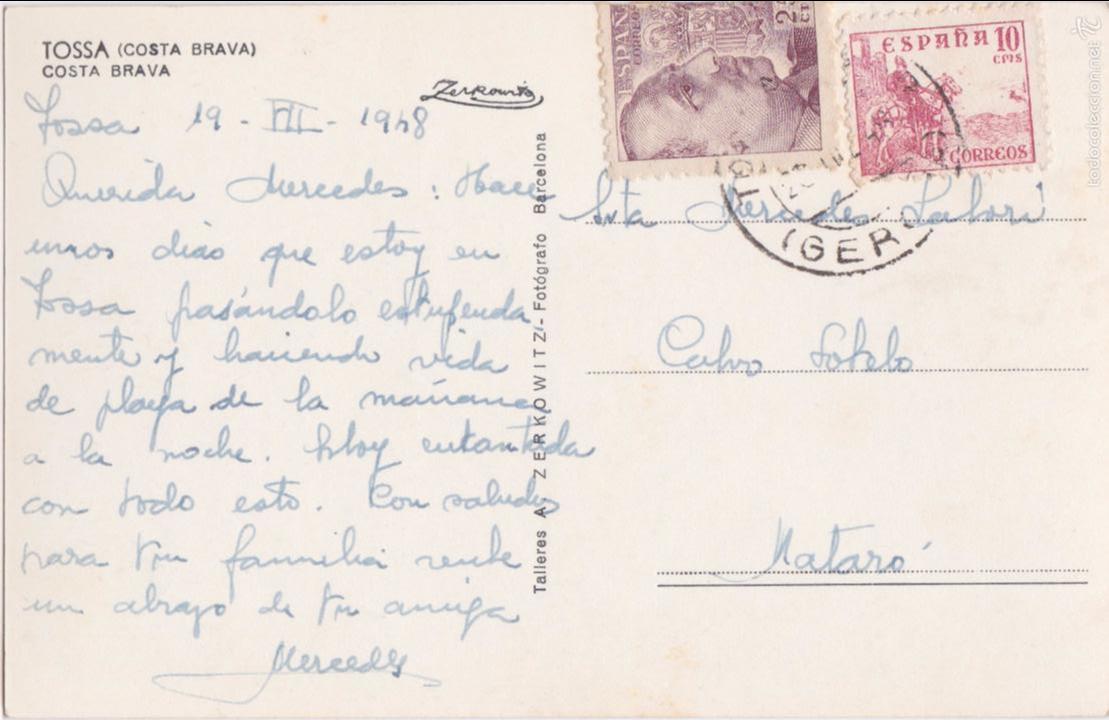 TOSSA (COSTA BRAVA)
COSTA BRAVA
Zerkowitz
Tossa 19 - VII - 1948
Querida Mercedes: Hace
unos dias que estoy en
Tossa pasándolo estupenda
mente y haciendo vida
de playa de la mañana
a la noche. Estoy encantada
con todo esto. Con saludos
para tu familia recibe
un abrazo de tu amiga
Mercedes
Talleres A. ZERKOWITZ - Fotógrafo Barcelona
ESPAÑA
CORREOS
25 CTS
ESPAÑA 10
CMS
CORREOS
(GER
Srta Mercedes
Calvo Sotelo
Mataró
todocoleccion.net